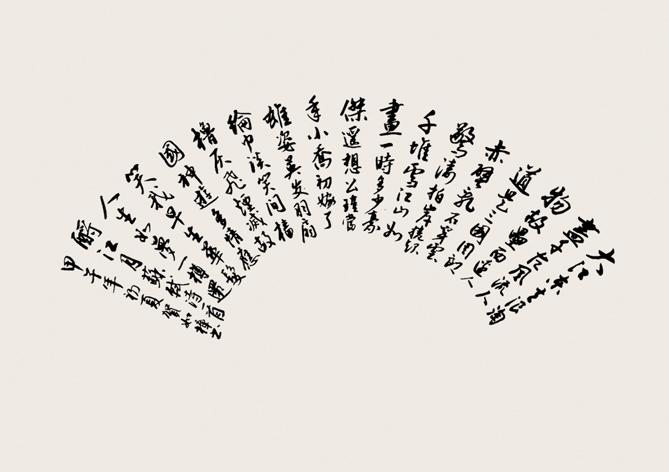 大江東去浪淘
盡千古風流人
物故壘西邊人
道是三國周郎
赤壁乱石穿雲
驚濤拍岸捲起
千堆雪江山如
畫一時多少豪
傑遙想公瑾當
年小喬初嫁了
雄姿英发羽扇
綸巾談笑間檣
櫓灰飛煙滅故
國神遊多情應
笑我早生華髮
人生如夢一樽還
酹江月蘇軾一首
甲午年初夏賀如樟書